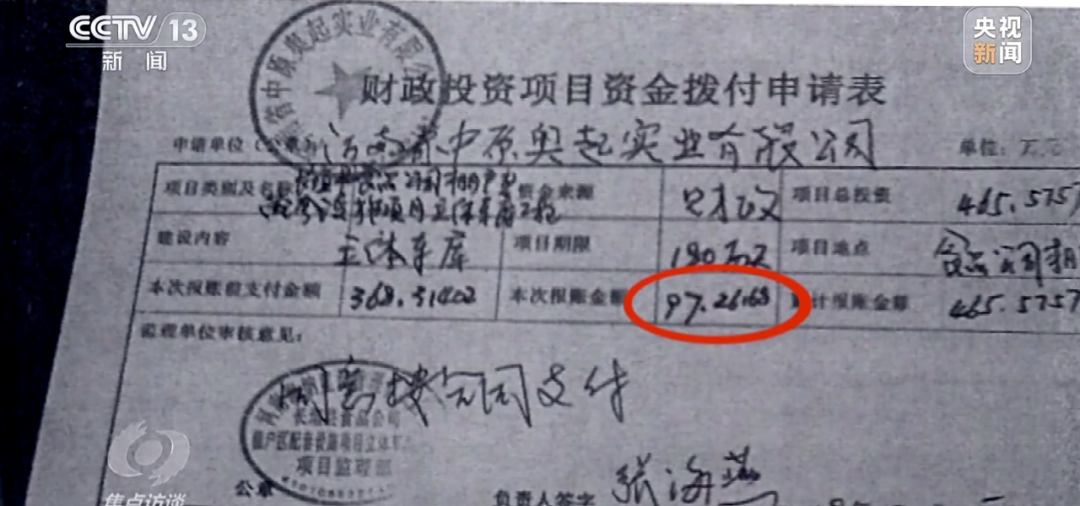 CCTV 13
新闻
央视
新闻
省中原奥起实业有限公
财政投资项目资金拨付申请表
申请单位(公章) 河南省中原奥起实业有限公司 单位:万元
项目类别及名称 资金来源 财政 项目总投资 465.5757
建设内容 立体车库 项目期限 项目地点 食品公司
本次报账前支付金额 368.31402 本次报账金额 97.26168 累计报账金额 465.5757
监理单位审核意见:
同意按合同支付
食品公司
项目监理部
公章 负责人签字 张海燕
焦点访谈